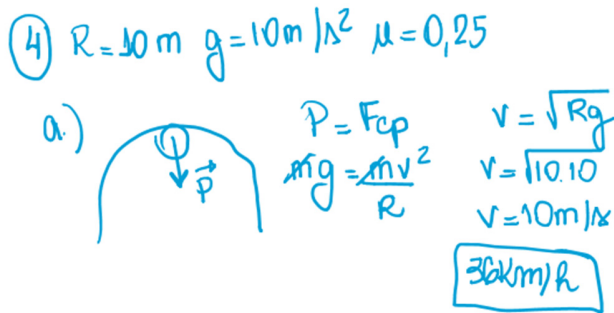 4 R=10m g=10m/s² μ=0,25
a.)
P⃗
P = Fcp
mg = mv²/R
v = √Rg
v = √10.10
v = 10m/s
36Km/h